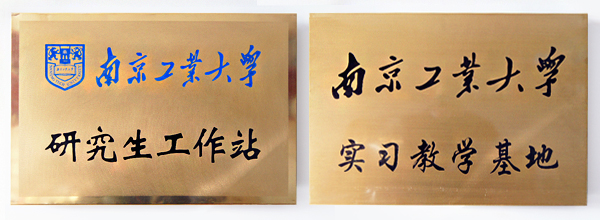 南京工业大学
研究生工作站
南京工业大学
实习教学基地